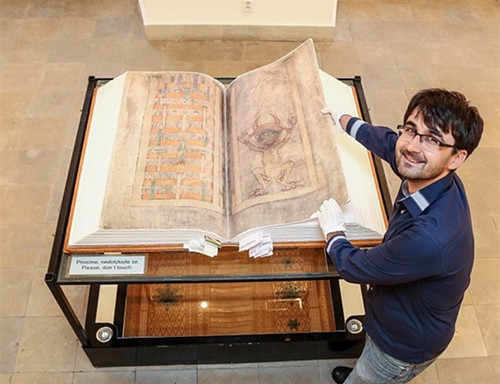 Prosíme, nedotýkejte se.
Please, don't touch.